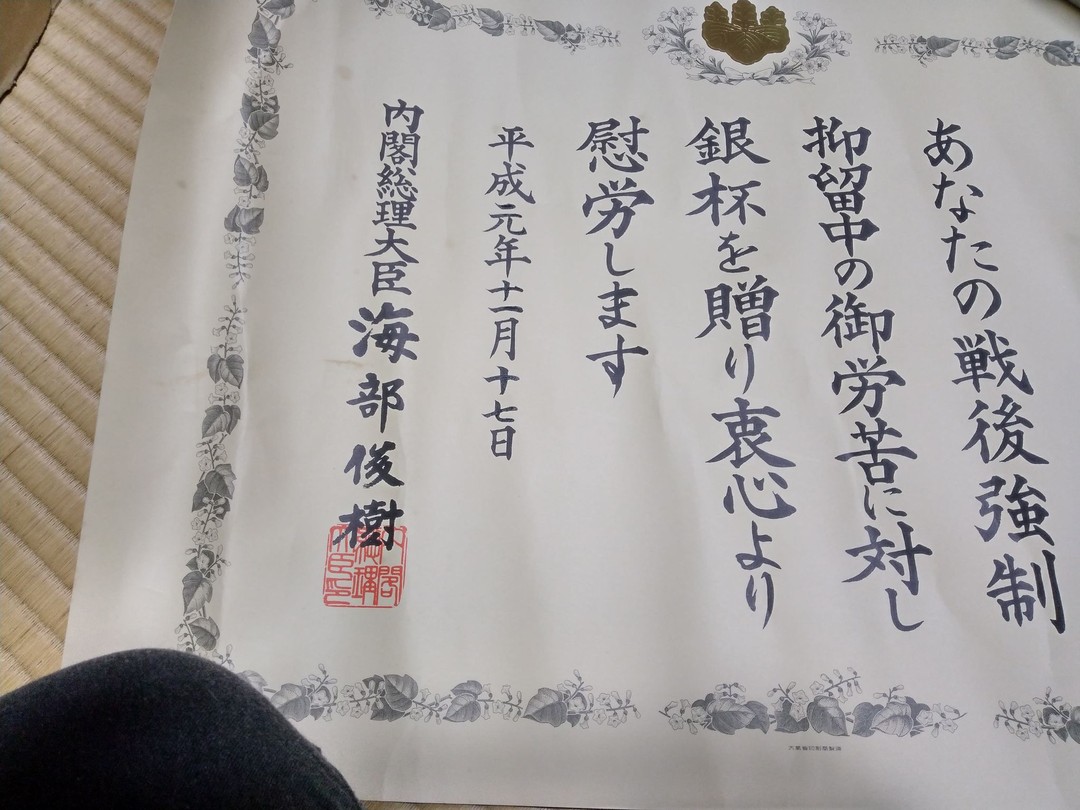 あなたの戦後強制
抑留中の御労苦に対し
銀杯を贈り衷心より
慰労します
平成元年十一月十七日
内閣総理大臣 海部俊樹
内閣総理大臣印